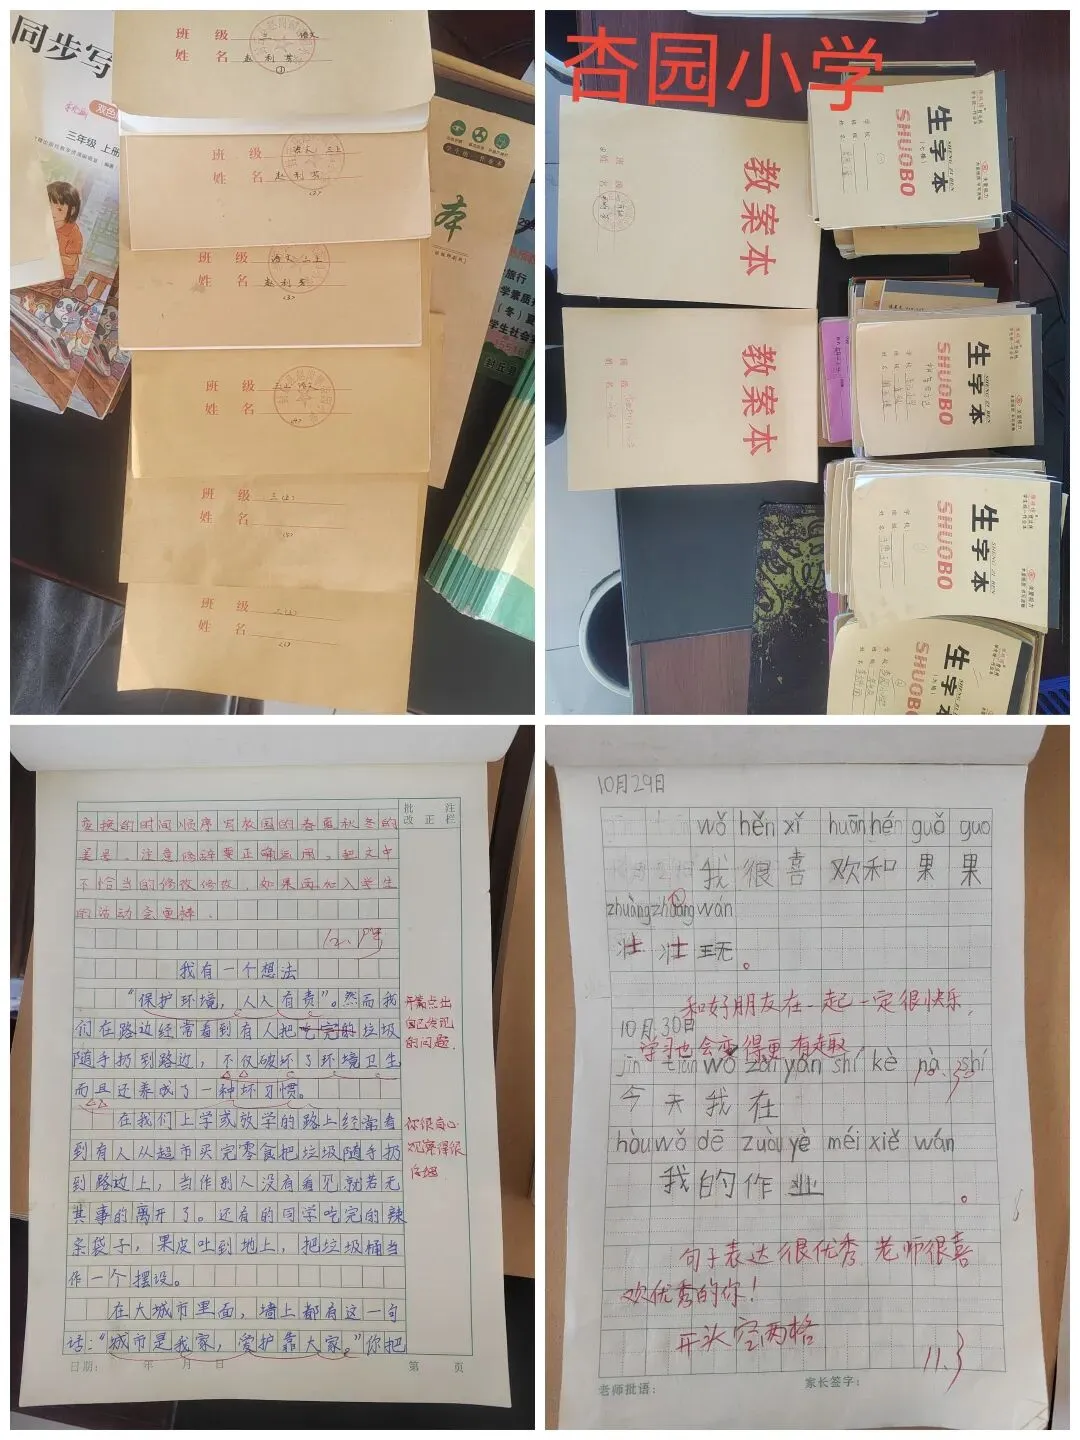 同步写
双色
三年级 上册
班 级 三 语文
姓 名 赵利芳
(1)
班 级 语文 三上
姓 名 赵利芳
(2)
班 级 语文 三上
姓 名 赵利芳
(3)
班 级 三上 语文
姓 名
(4)
班 级 三(上)
姓 名
(5)
班 级 三(上)
姓 名
本
旅行
学素质
(冬)夏
学生社会
封丘县
杏园小学
教案本
教案本
生字本
SHENG ZI BEN
SHUOBO
生字本
SHENG ZI BEN
SHUOBO
生字本
SHENG ZI BEN
SHUOBO
生字本
SHENG ZI BEN
SHUOBO
批注
改正栏
变换的时间顺序写校园的春夏秋冬的
美景。注意修辞要正确运用,把文中
不恰当的修改修改,如果再加入学生
的活动会更棒。
我有一个想法
“保护环境,人人有责”。然而我
们在路边经常看到有人把吃完的垃圾
随手扔到路边,不仅破坏了环境卫生
而且还养成了一种坏习惯。
开篇点出
自己发现
的问题.
在我们上学或放学的路上经常看
到有人从超市买完零食把垃圾随手扔
到路边上,当作别人没有看见就若无
其事的离开了。还有的同学吃完的辣
条袋子,果皮吐到地上,把垃圾桶当
作一个摆设。
你很有心
观察得很
仔细.
在大城市里面,墙上都有这一句
话:“城市是我家,爱护靠大家。”你把
日期: 年 月 日 第 页
10月29日
wǒ hěn xǐ huān hé guǒ guo
我很喜欢和果果
zhuàng zhuang wán
壮壮玩。
和好朋友在一起一定很快乐,
学习也会变得更有趣
10月30日
jīn tiān wǒ zài yán shí kè
今天我在
hòu wǒ dē zuòu yè méi xiě wán
我的作业。
句子表达很优秀,老师很喜
欢优秀的你!
开头空两格
11.3
老师批语: 家长签字: